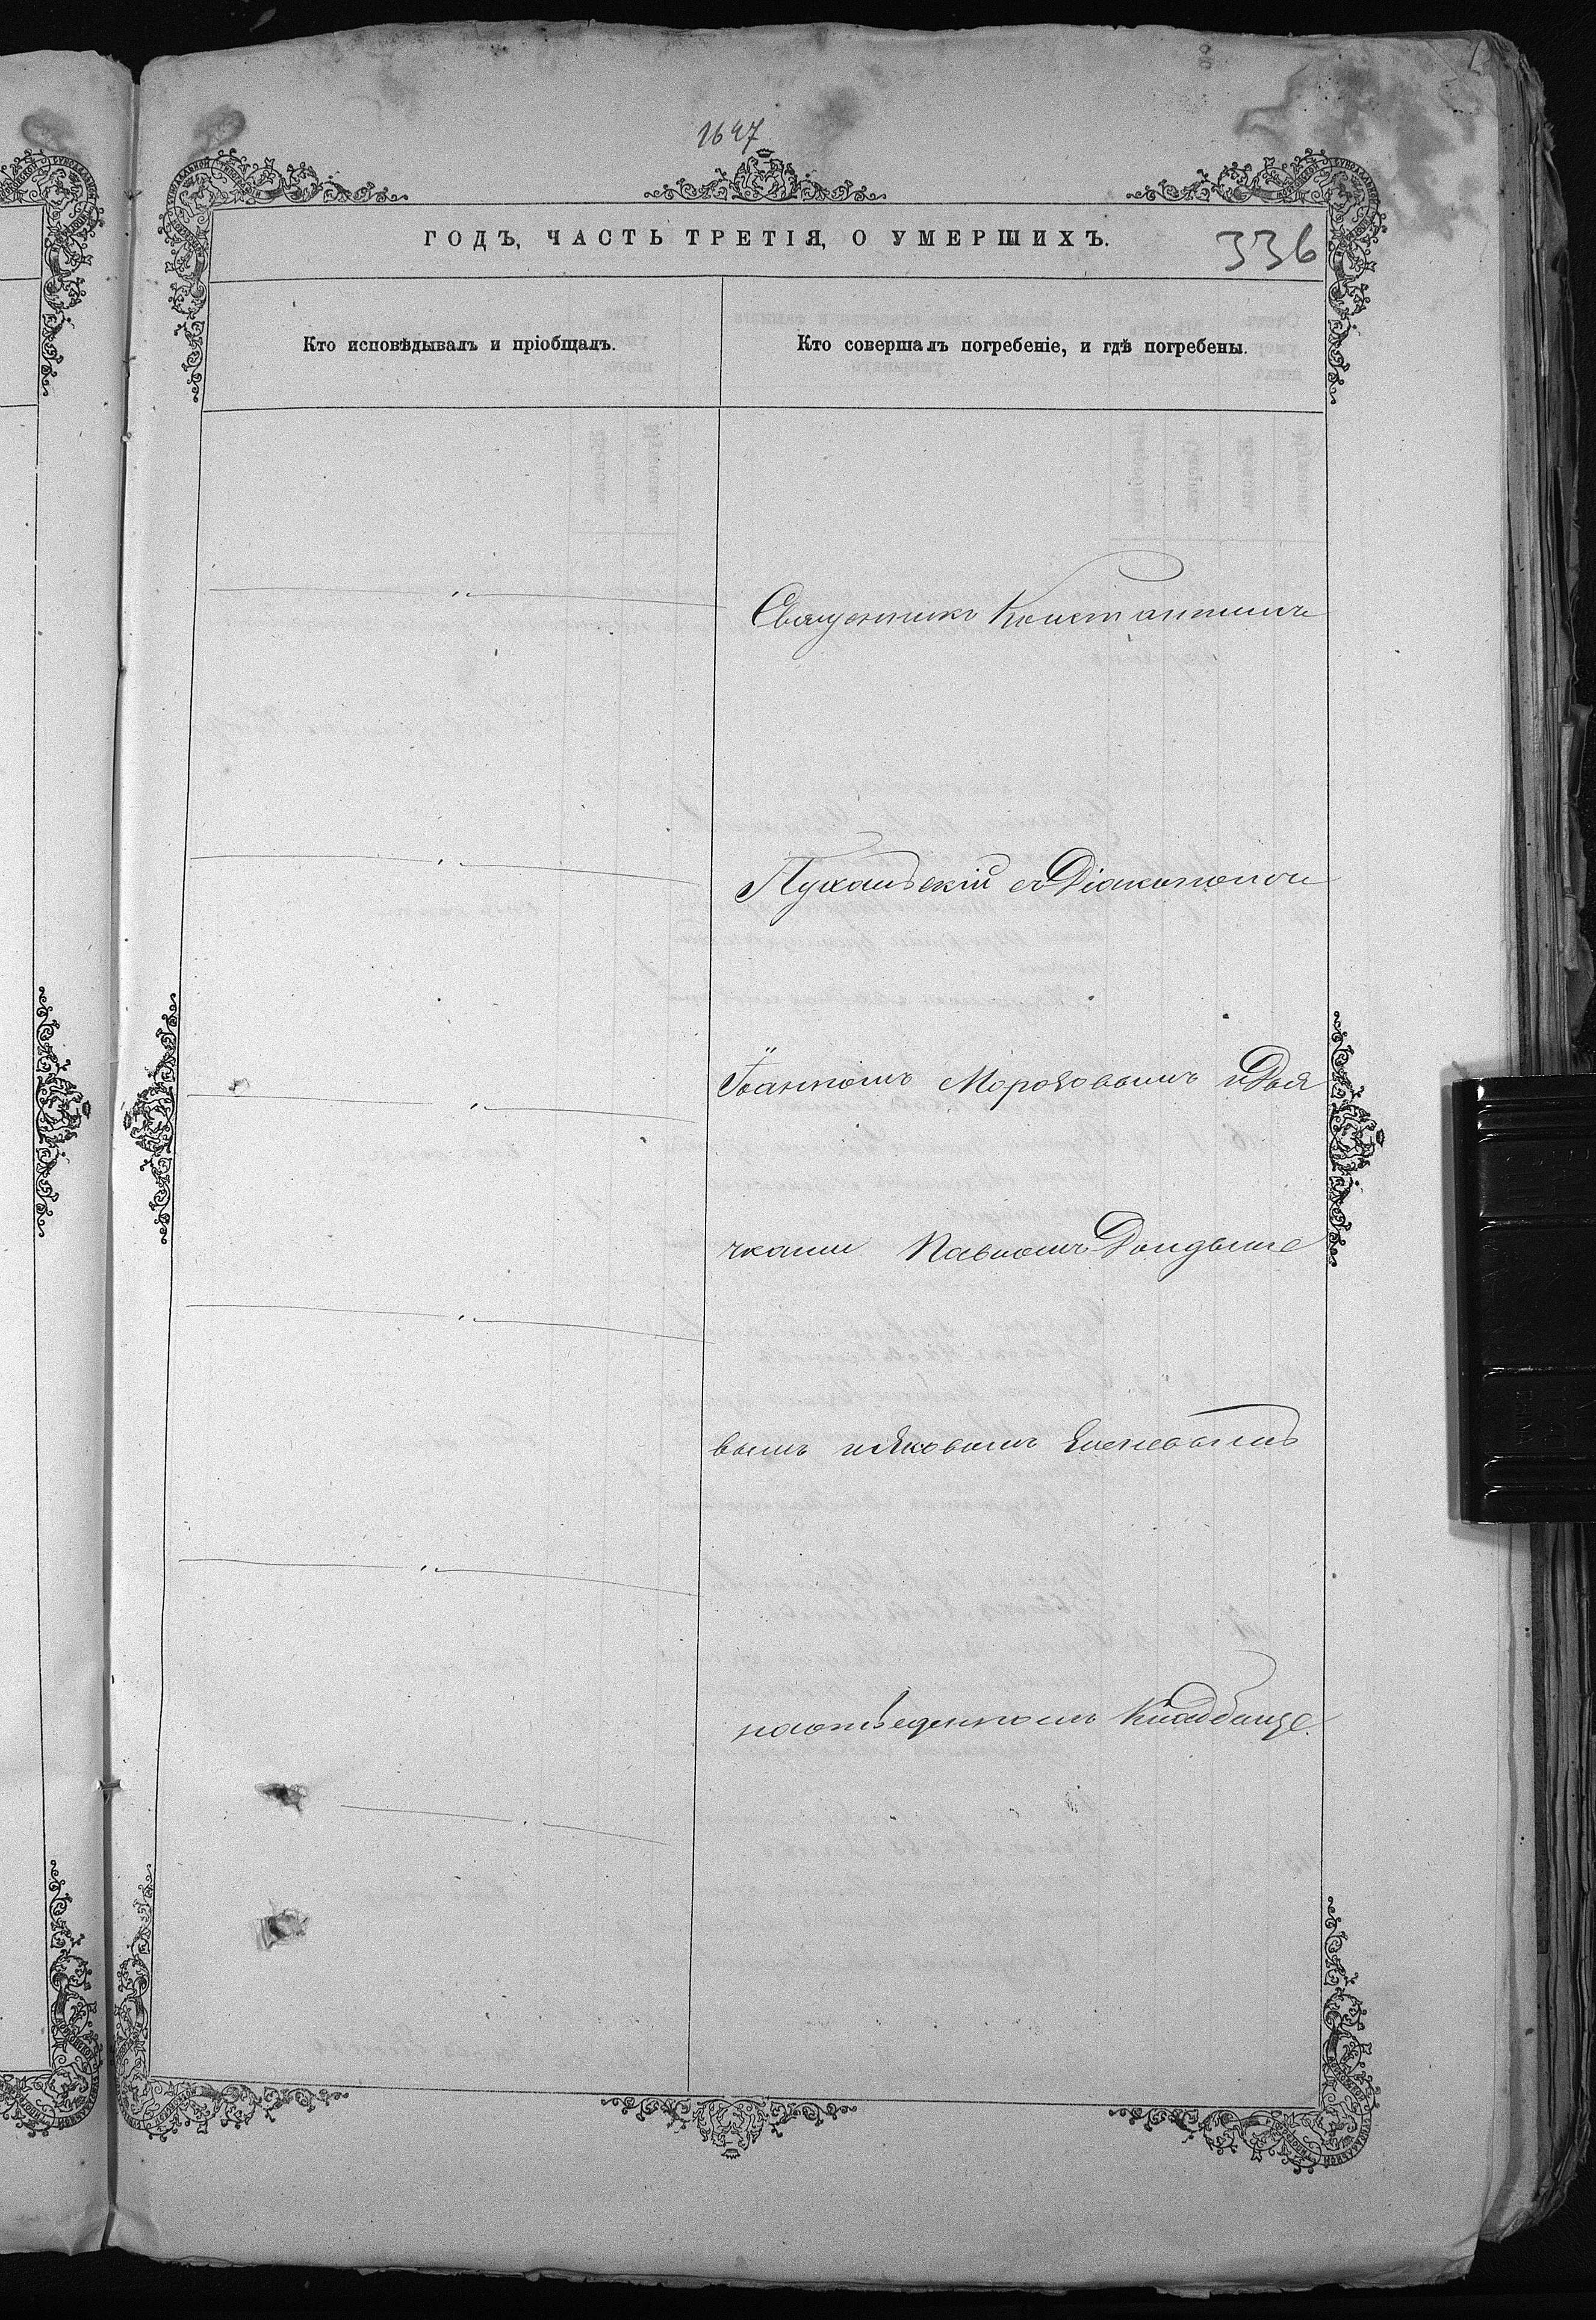 1647
ГОДЪ, ЧАСТЬ ТРЕТІЯ, О УМЕРШИХЪ.
336
Кто исповѣдывалъ и пріобщалъ.
Кто совершалъ погребеніе, и гдѣ погребены.
Священникъ Константинъ
съ Діакономъ
Іоанномъ Морозовымъ и Дья
чками Павломъ
вымъ и Яковымъ
на отведенномъ Кладбище.